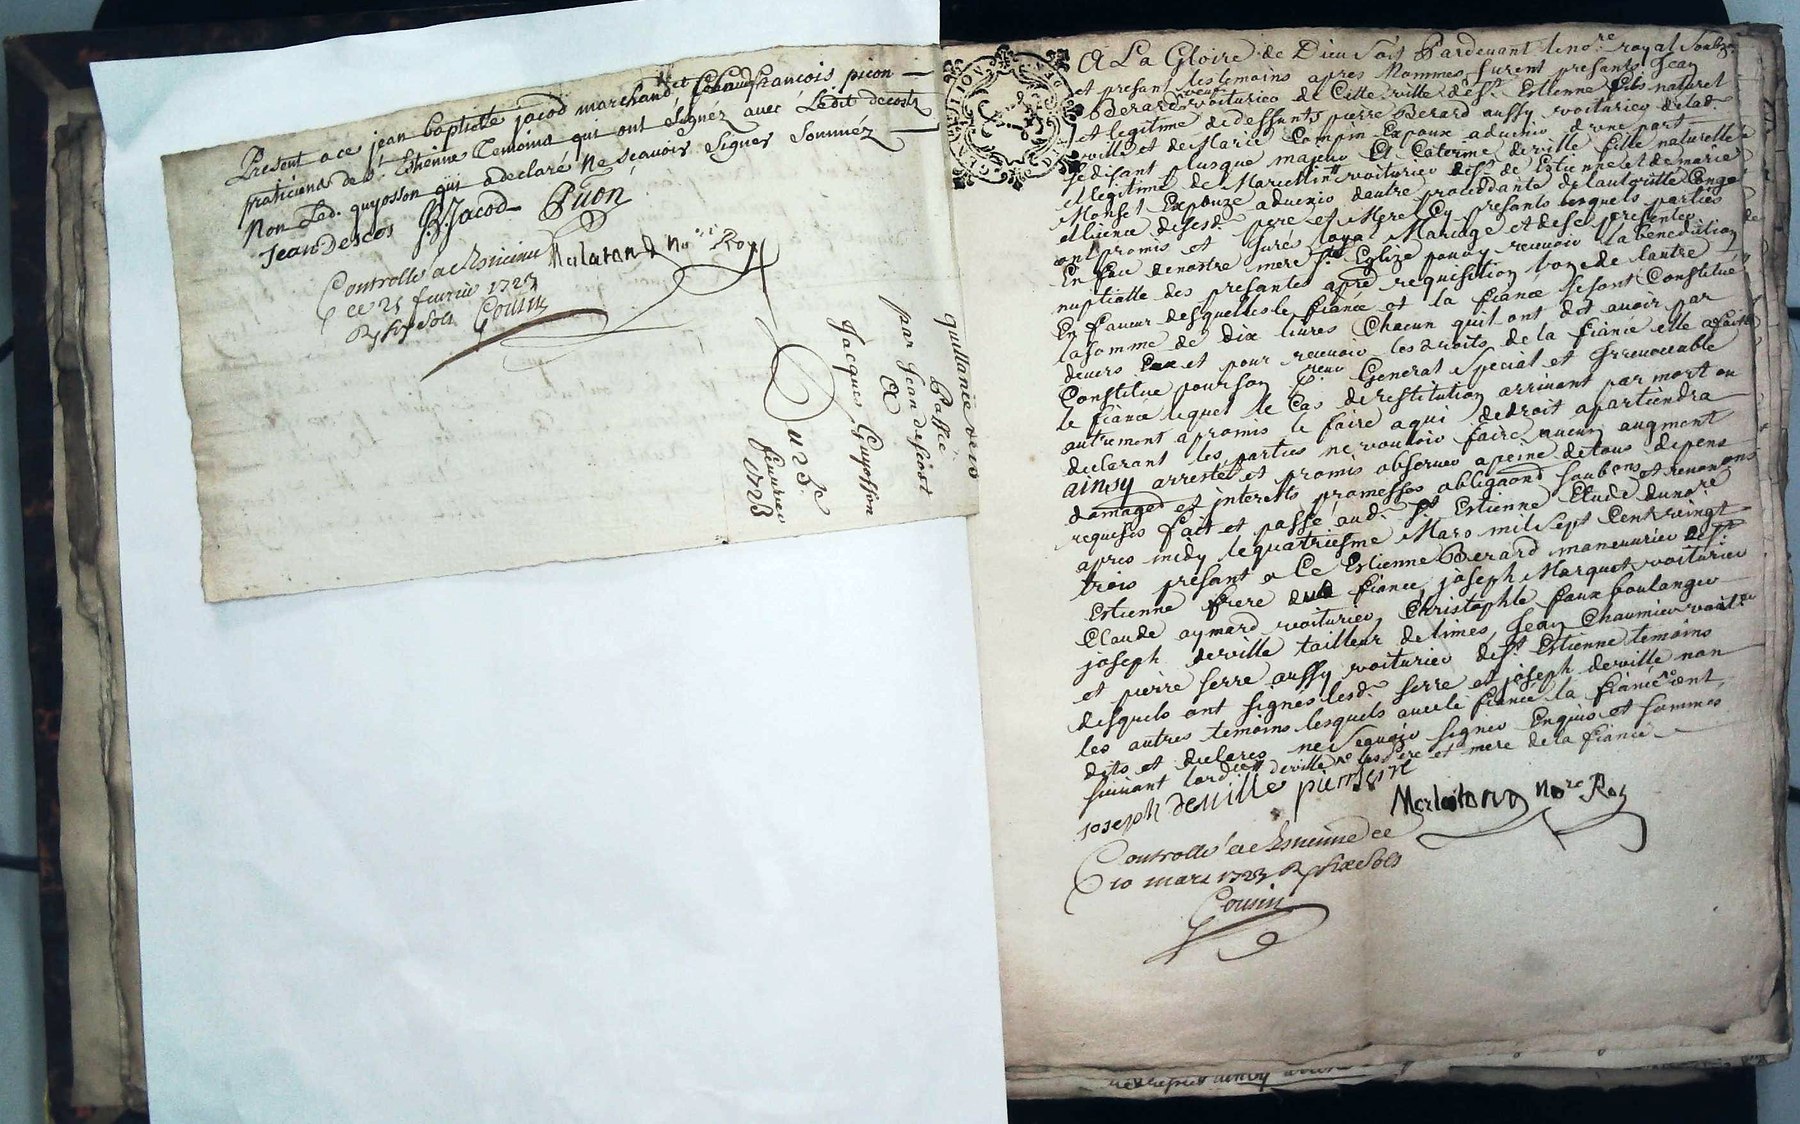 Present a ce jean baptiste jacod marchand et Claude francois picon
praticiens de St. Estienne Temoins qui ont signéz avec Ledit decosts
Non Led. guyosson qui a declaré ne sçavoir signer somméz
Jean Descos J.B. Jacod Picon
Controllé a St Estienne
ce 25 feurier 1723
R six sols Cousin
Merlatond Nore Roy
quittance
Passée
par Jean descost
A
Jacques Guyosson
Du 23e
feurier
1723
A La Gloire de Dieu soit Pardeuant le nore royal soubz
et presant les temoins apres Nommes furent presants Jean
Berard voiturier de Cette ville de St. Estienne fils naturel
et legitime de deffunts pierre Berard aussy voiturier de lad.
ville et de Marie Compin Expoux aduenir d'une part
se disant plusque majeur Et Caterine deville fille naturelle
et legitime de Marcellin voiturier de St. Estienne et de marie
Monset Expouze aduenir dautre proceddante de lautoritté Conge
et licence de sesd. pere et Mere Cy presants lesquels parties
ont promis et Jurés loyal Mariage et de se presenter
En face de nostre mere Ste Eglize pour y receuoir la benediction
nuptialle des presantes apres requisition l'un de lautre
En faueur desquelles le fiancé et la fiancé se sont Constitué
la somme de dix liures Chacun quil ont dit auoir par
deuers Eux et pour receuoir les droits de la fiancé elle a fait et
Constitue pour son preur General special et Irreuocable
le fiance lequel le Cas de restitution arriuant par mort ou
autrement a promis le faire a qui de droit apartiendra
declarant les parties ne vouloir faire aucun augment
ainsy arresté et promis obseruer a peine de tous depens
damages et interests promesses obligaons soubons et renonons
requises fait et passé aud. St Estienne Etude dunore
apres midy le quatriesme Mars mil sept Cent vingt
trois présant a Ce Estienne Berard maneuurier de St.
Estienne frere du fiance, joseph Marquet voiturier
Claude aymard voiturier, Christophle faux boulanger
joseph deville tailleur de limes, Jean Chaumier voitur
et pierre serre aussy voiturier de St. Estienne temoins
desquels ont signes lesd. serre et joseph deville non
les autres temoins lesquels auec le fiancé la fiancée ont
dits et declarés ne sçauoir signer Enquis et sommes
suiuant lordce deville les pere et mere de la fiancé
joseph deville pier sere
Merlatond Nore Roy
Controllé a St Estienne ce
10 mars 1723 R six sols
Cousin